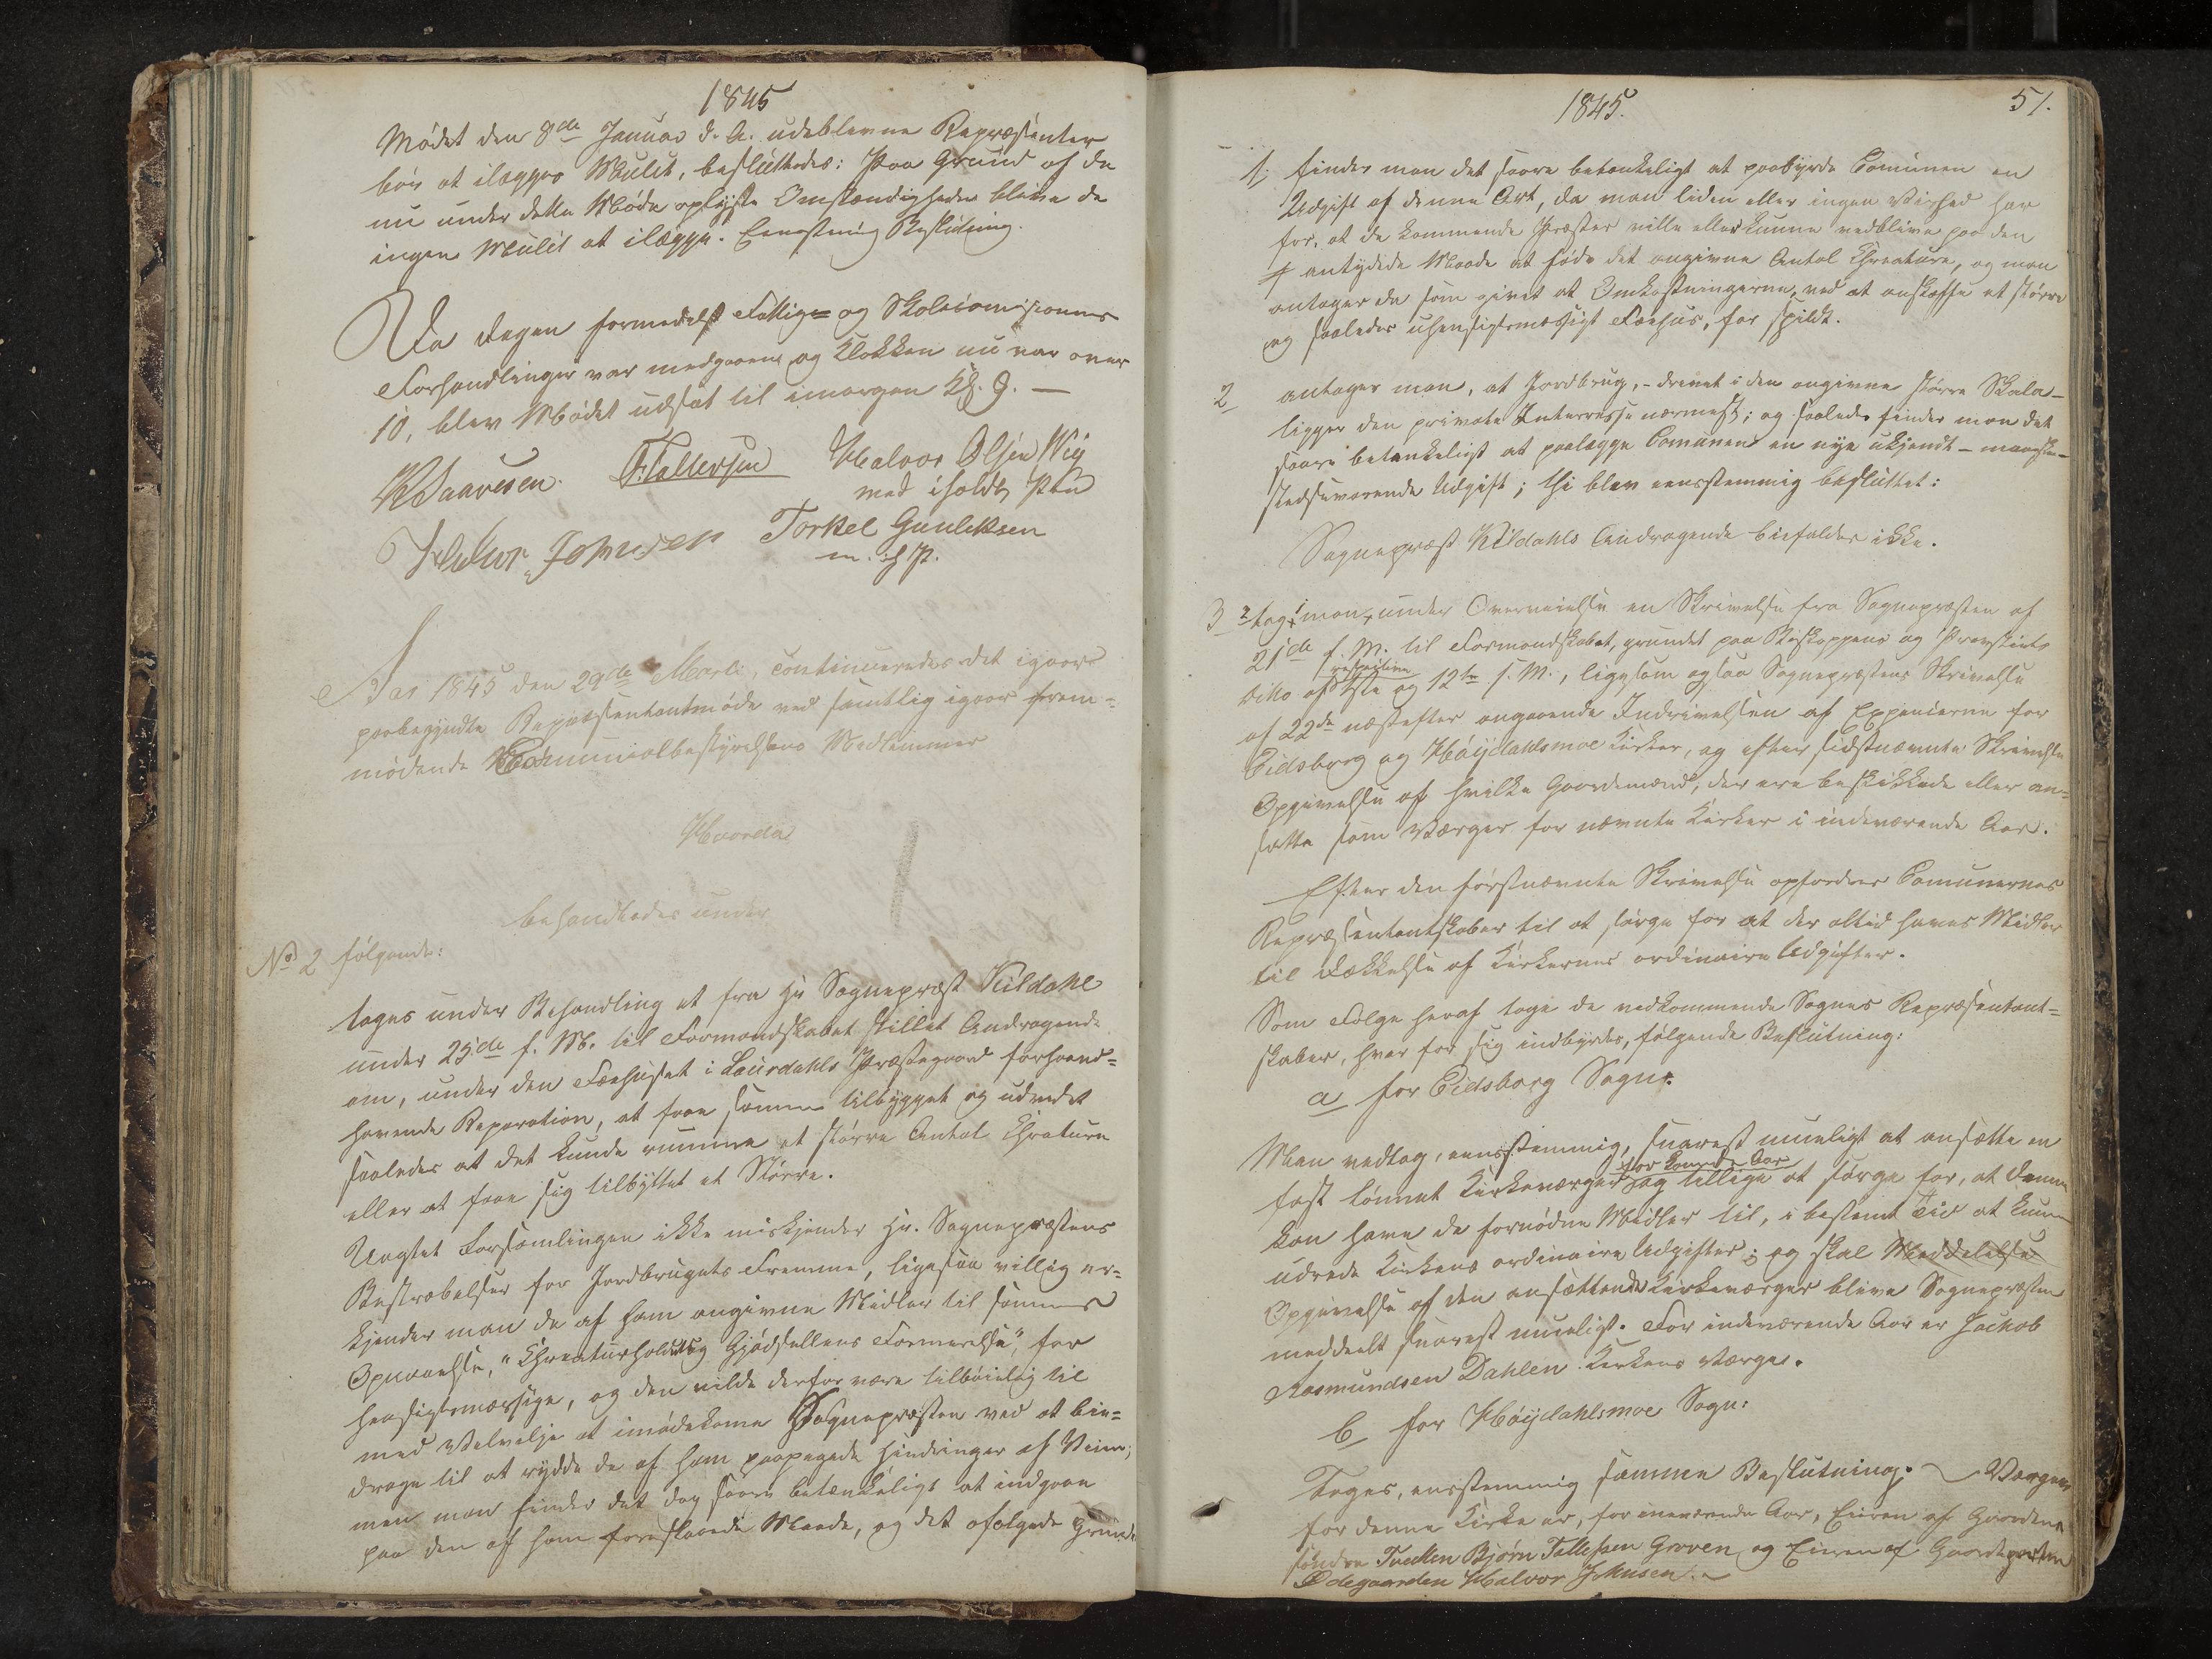 1845
Mødet den 8de Januar d. A. udeblevne Repræsenter
bør at ilægges Mulct, besluttedes: Paa Grund af de
nu under dette Møde oplyste Omstændigheder bleve de
ingen Mulct at ilægge. Eenstemig Beslutning.
Da Dagen formedelst Fattig- og Skolecomisionens
Forhandlinger var medgaaene og Klokken nu var over
10, blev Mødet udsat til imorgen Kl. 9. —
Saavesen. Tallefsen Halvor Olsen Vig
med iholdt Pen
Halvor Johnsen Torkel Gunleksen
m. i. h. P.
Aar 1845 den 29de Marti, continueredes det igaar
paabegyndte Repræsentantmøde ved samtlig igaar frem-
mødende Communialbestyrelsens Medlemmer
Hvorda
behandledes under
No 2 følgende:
toges under Behandling et fra Hr Sognepræst Kildahl
under 25de f. M. til Formandskabet stillet Andragende
om, under den Fæehuset i Laurdahls Præstegaard forhaand-
havende Reparation, at faae samme tilbygget og udvidet
saaledes at det kunde rumme et større Antal Chreature
eller at faae sig tilbyttet et Større.
Uagtet Forsamlingen ikke miskjender Hr. Sognepræstens
Bestræbelser for Jordbrugets Fremme, ligesaa villig er-
kjender man de af ham angivne Midler til sammes
Opnaaelse, "Chreaturhold og Gjødsellens Formerelse", for
hensigtsmæssige, og den vilde derfor være tilbøielig til
med Velvilje at imødekome Sognepræsten ved at bi-
drage til at rydde de af ham paapegede Hindringer af Veien;
men man finder det dog saare betænkeligt at indgaae
paa den af ham foreslaaede Maade, og det afølgede Grunde
1845.
51.
1, finder man det saare betænkeligt at paabyrde Comunen en
Udgift af denne Art, da man liden eller ingen Vished har
for, at de kommende Præster ville eller kunne vedblive paa den
antydede Maade at føde det angivne Antal Chreature, og man
antager da som givet at Omkostningerne, ved at anskaffe et større
og saaledes uhensigtsmæssigt Fæehus, for spildt.
2 antager man, at Jordbrug, - drevet i den angivne større Skala -
ligger den private Interresse nærmest; og saaledes finder man det
saare betænkeligt at paalægge Comunen en nye ukjendt - maaske -
stedsevarende Udgift; thi blev eensstemmig besluttet:
Sognepræst Kildahls Andragende biefaldes ikke.
3 tog man under Overveielse en Skrivelse fra Sognepræsten af
21de f. M. til Formandskabet, grundet paa Biskoppens og Provstiets
respective
ditto af 4de og 12te s. M., ligesom ogsaa Sognepræstens Skrivelse
af 22de næstefter angaaende Inddrivelsen af Expencerne for
Eidsborg og Høijdahlsmoe Kirker, og efter sidstnævnte Skrivelse
Opgivelse af hvilke Gaardmænd, der ere beskikkede eller an-
satte som Værger for nævnte Kirker i indeværende Aar.
Efter den førstnævnte Skrivelse opfordres Comunernes
Repræsentantskaber til at sørge for at der altid haves Midler
til Dækkelse af Kirkernes ordinaire Udgifter.
Som Følge heraf toge de vedkommende Sognes Repræsentant-
skaber, hver for sig indbyrdes, følgende Beslutning:
a for Eidsborg Sogn:
Man vedtog, eensstemmig, snarest mueligt at ansætte en
for komende Aar
fast lønnet Kirkeværge og tillige at sørge for, at denne
kan have de fornødne Midler til, i bestemt Tid at kunne
udrede Kirkens ordinaire Udgifter; og skal Meddelelse
Opgivelse af den ansættende Kirkeværger blive Sognepræsten
meddeelt snarest mueligst. For indeværende Aar er Jachob
Aasmundsen Dahlen Kirkens Værge.
b for Høijdahlsmoe Sogn:
Toges, eensstemmig samme Beslutning. — Værgen
for denne Kirke er, for inneværende Aar, Eieren af Gaarden
søndre Tveiten Bjørn Tallefsen Groven og Eieren af Gaardeparten
Ødegaarden Halvor Johnsen. —